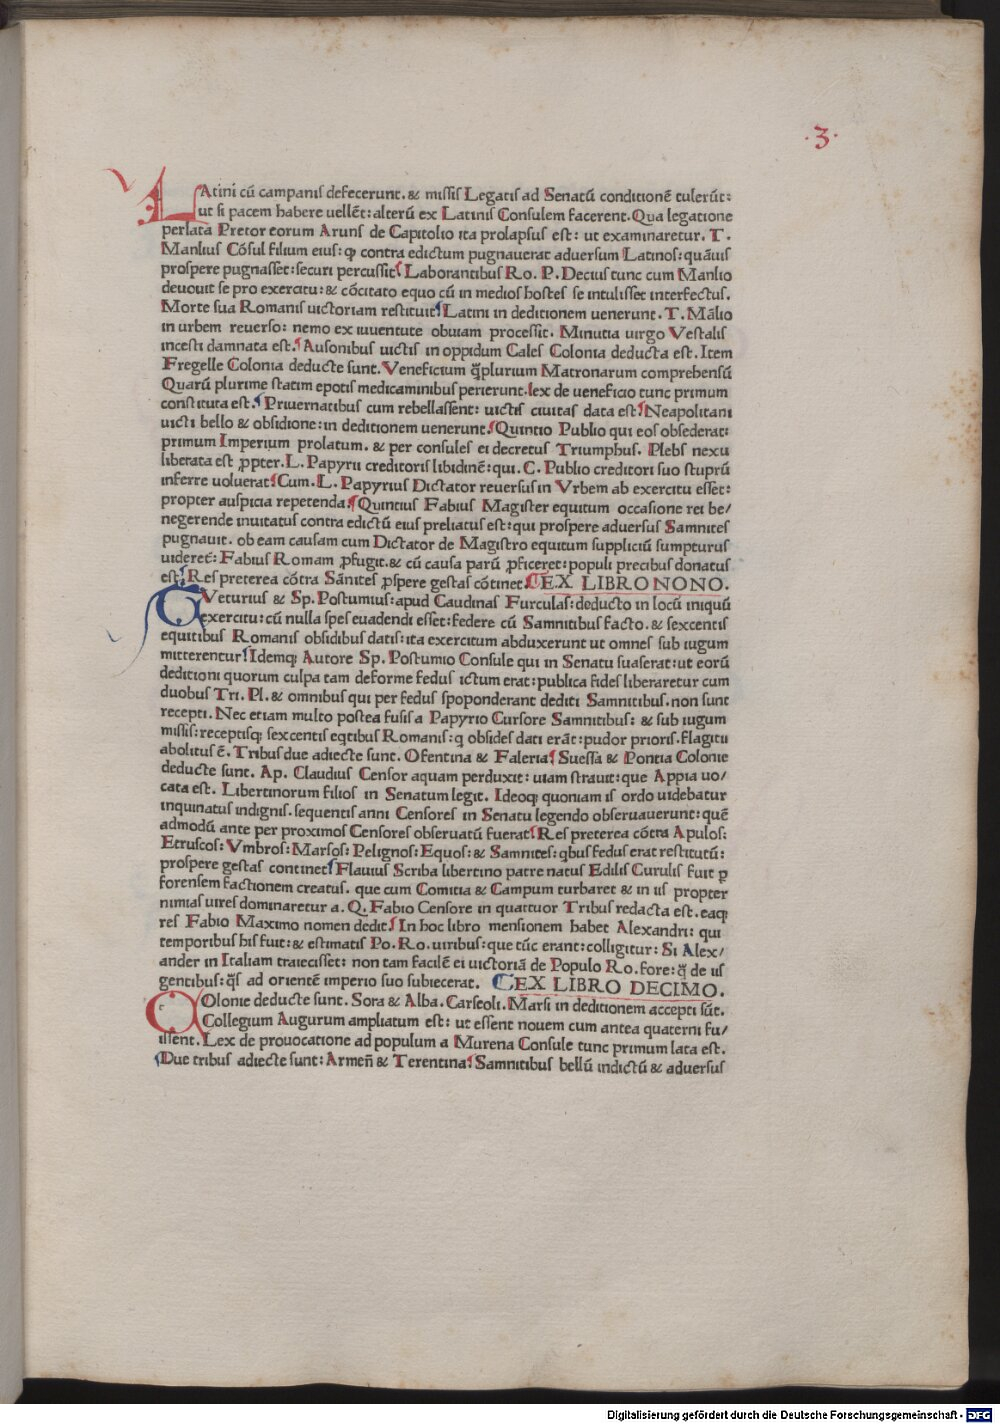 ·3·
LAtini cū campanis defecerunt. & missis Legatis ad Senatū conditionē tulerūt:
ut si pacem habere uellēt: alterū ex Latinis Consulem facerent. Qua legatione
perlata Pretor eorum Aruns de Capitolio ita prolapsus est: ut examinaretur. T.
Manlius Cōsul filium eius: ꝙ contra edictum pugnauerat aduersum Latinos: quāuis
prospere pugnasset: securi percussit¶ Laborantibus Ro. P. Decius tunc cum Manlio
deuouit se pro exercitu: & cōcitato equo cū in medios hostes se intulisset interfectus.
Morte sua Romanis uictoriam restituit¶ Latini in deditionem uenerunt. T. Mālio
in urbem reuerso: nemo ex iuuentute obuiam processit. Minutia uirgo Vestalis
incesti damnata est.¶ Ausonibus uictis in oppidum Cales Colonia deducta est. Item
Fregelle Colonia deducte sunt. Veneficium q̄plurium Matronarum comprehensū
Quarū plurime statim epotis medicaminibus perierunt. lex de ueneficio tunc primum
constituta est.¶ Priuernatibus cum rebellassent: uictis ciuitas data est¶ Neapolitani
uicti bello & obsidione: in deditionem uenerunt¶ Quintio Publio qui eos obsederat:
primum Imperium prolatum. & per consules ei decretus Triumphus. Plebs nexu
liberata est ꝓpter. L. Papyrii creditoris libidinē: qui. C. Publio creditori suo stuprū
inferre uoluerat¶ Cum. L. Papyrius Dictator reuersus in Vrbem ab exercitu esset:
propter auspicia repetenda¶ Quintius Fabius Magister equitum occasione rei be/
negerende inuitatus contra edictū eius preliatus est: qui prospere aduersus Samnites
pugnauit. ob eam causam cum Dictator de Magistro equitum suppliciū sumpturus
uideret̄: Fabius Romam ꝓfugit. & cū causa parū ꝓficeret: populi precibus donatus
est¶ Res preterea cōtra Sānites ꝓspere gestas cōtinet¶ EX LIBRO NONO.
CVeturius & Sp. Postumius: apud Caudinas Furculas: deducto in locū iniquū
exercitu: cū nulla spes euadendi esset: federe cū Samnitibus facto. & sexcentis
equitibus Romanis obsidibus datis: ita exercitum abduxerunt ut omnes sub iugum
mitterentur¶ Idemqꝫ Autore Sp. Postumio Consule qui in Senatu suaserat: ut eorū
deditioni quorum culpa tam deforme fedus ictum erat: publica fides liberaretur cum
duobus Tri. Pl. & omnibus qui per fedus spoponderant dediti Samnitibus. non sunt
recepti. Nec etiam multo postea fusis a Papyrio Cursore Samnitibus: & sub iugum
missis: receptisqꝫ sexcentis eqtibus Romanis: q obsides dati erāt: pudor prioris flagitii
abolitus ē. Tribus due adiecte sunt. Ofentina & Faleria¶ Suessa & Pontia Colonie
deducte sunt. Ap. Claudius Censor aquam perduxit: uiam strauit: que Appia uo/
cata est. Libertinorum filios in Senatum legit. Ideoqꝫ quoniam is ordo uidebatur
inquinatus indignis. sequentis anni Censores in Senatu legendo obseruauerunt: quē
admodū ante per proximos Censores obseruatū fuerat¶ Res preterea cōtra Apulos:
Etruscos: Vmbros: Marsos: Pelignos: Equos: & Samnites: qbus fedus erat restitutū:
prospere gestas continet¶ Flauius Scriba libertino patre natus Edilis Curulis fuit ꝑ
forensem factionem creatus. que cum Comitia & Campum turbaret & in iis propter
nimias uires dominaretur a. Q. Fabio Censore in quattuor Tribus redacta est. eaqꝫ
res Fabio Maximo nomen dedit¶ In hoc libro mensionem habet Alexandri: qui
temporibus his fuit: & estimatis Po. Ro. uiribus: que tūc erant: colligitur: Si Alex/
ander in Italiam traiecisset: non tam facilē ei uictoriā de Populo Ro. fore: q̄ de iis
gentibus: q̄s ad orientē imperio suo subiecerat. ¶ EX LIBRO DECIMO.
COlonie deducte sunt. Sora & Alba. Carseoli. Marsi in deditionem accepti sūt.
Collegium Augurum ampliatum est: ut essent nouem cum antea quaterni fu/
issent. Lex de prouocatione ad populum a Murena Consule tunc primum lata est.
¶Due tribus adiecte sunt: Armen̄ & Terentina¶ Samnitibus bellū indictū & aduersus
Digitalisierung gefördert durch die Deutsche Forschungsgemeinschaft - DFG